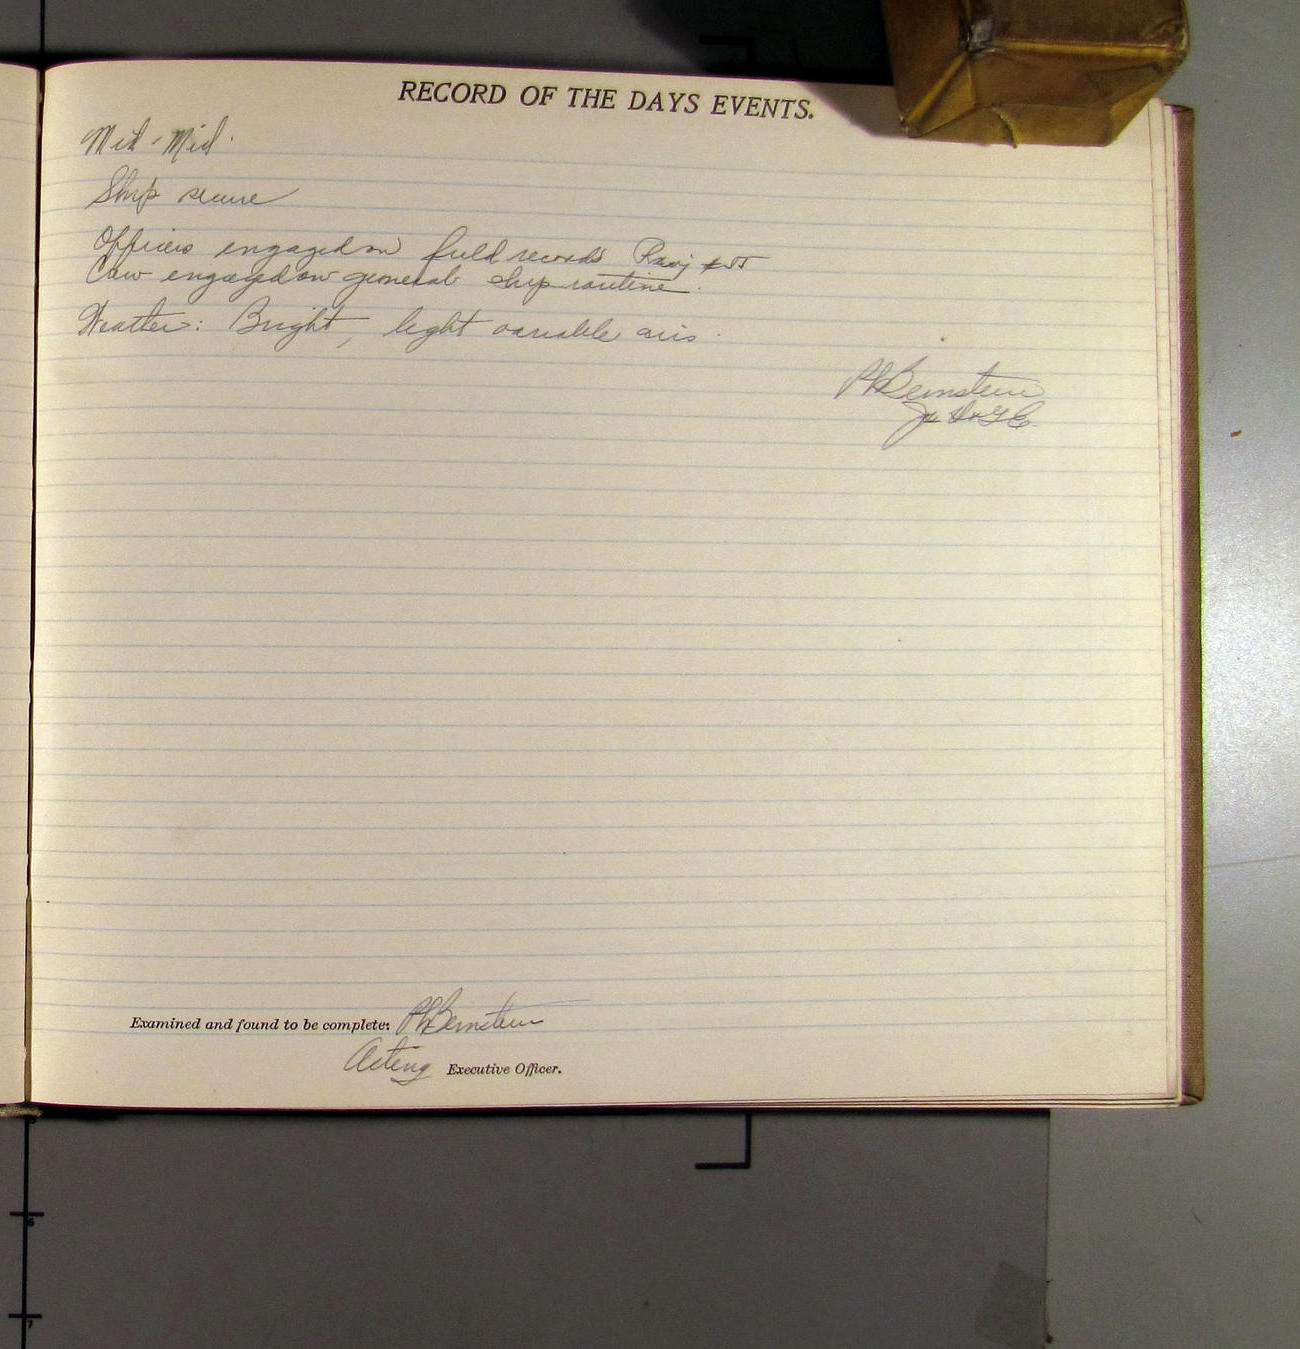 RECORD OF THE DAYS EVENTS.
Mid-Mid.
Ship secure
Officers engaged on field records
Crew engaged on general ship routine.
Weather: Bright, light variable airs.
PABernstein
Jr. H&GE.
Examined and found to be complete: PABernstein
Acting Executive Officer.
6
7